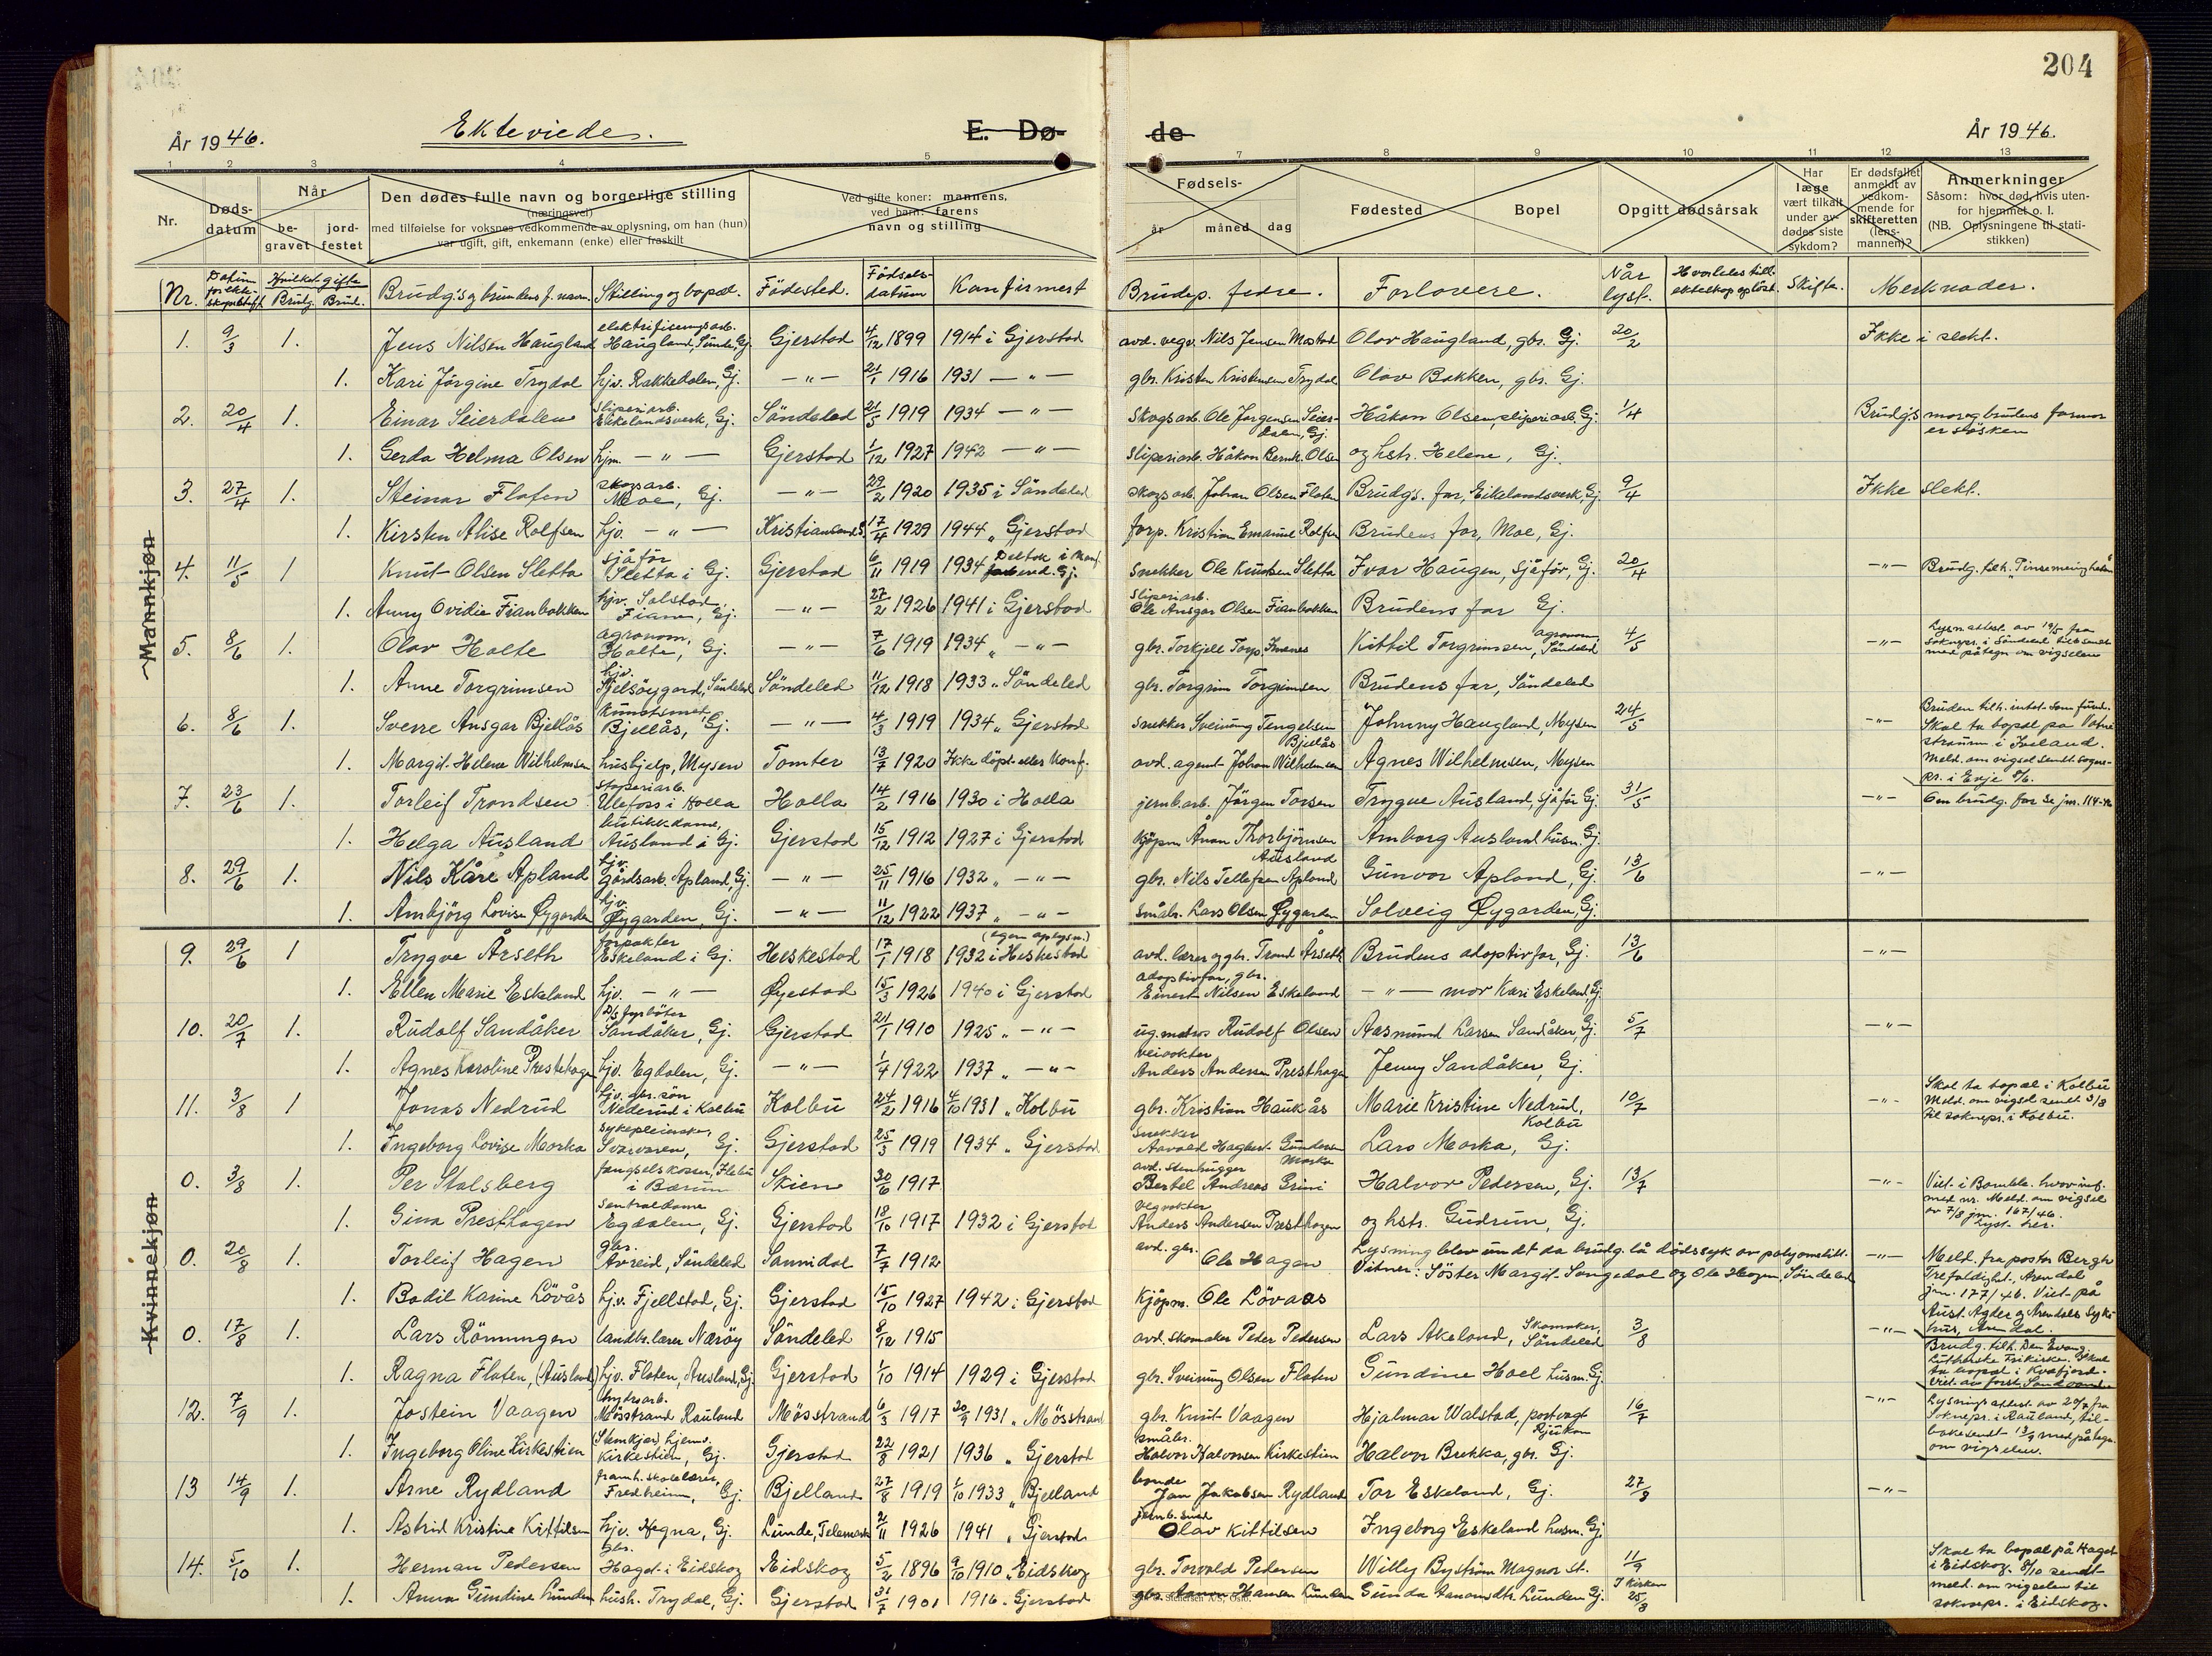 204
År 1946. Ekteviede. E. Dø- de År 1946.
1 2 3 4 5 7 8 9 10 11 12 13
Nr. Døds- datum Når be- gravet jord- festet
Den dødes fulle navn og borgerlige stilling
(næringsvei)
med tilføielse for voksnes vedkommende av oplysning, om han (hun)
var ugift, gift, enkemann (enke) eller fraskilt
Ved gifte koner: mannens,
ved barn: farens
navn og stilling
Fødsels- år måned dag Fødested Bopel Opgitt dødsårsak
Har læge vært tilkalt under av- dødes siste sykdom?
Er dødsfallet anmeldt av vedkom- mende for skifteretten (lens- mannen)?
Anmerkninger
Såsom: hvor død, hvis uten-
for hjemmet o. l.
(NB. Oplysningene til stati-
stikken)
Nr. Hvilket gifte Brudg. Brud. Brudg's og brudens f. navn. Stilling og bopæl. Födested. Födsels- datum Konfirmert Brudep. fedre. Forlovere. Når lyst. Hvorledes tidl. ekteskap opløst. Skifte. Merknader.
Mannkjøn
1. 9/3 1. Jens Nilsen Haugland elektrifiseringsarb. Haugland, Sunde, Gj. Gjerstad 4/12 1899 1914 i Gjerstad avd. vegv. Nils Jensen Mostad Olav Haugland, gbr. Gj. 20/2 Ikke i slekt.
1. Kari Jörgine Trydal hjv. Rakkedalen, Gj. — " — 21/1 1916 1931 — " — gbr. Kristen Kristensen Trydal Olav Bakken, gbr. Gj.
2. 20/4 1. Einar Seierdalen sliperiarb. Eikelandsverk, Gj. Söndeled 21/5 1919 1934 — " — Skogsarb. Ole Jorgensen Seier- dalen, Gj. Håkon Olsen, sliperiarb. Gj. 1/4 Brudg's mor og brudens farmor er søsken
1. Gerda Helma Olsen hjm. — " — Gjerstad 1/12 1927 1942 — " — sliperiarb. Håkon Bernh. Olsen og hstr. Helene, Gj.
3. 27/4 1. Steinar Floten skogsarb. Moe, Gj. — " — 29/2 1920 1935 i Söndeled skogsarb. Johan Olsen Floten Brudg's. far, Eikelandsverk, Gj. 9/4 Ikke slekt.
1. Kirsten Alise Rolfsen hjv. — " — Kristiansand S. 17/4 1929 1944 " Gjerstad forp. Kristian Emanuel Rolfsen Brudens far, Moe, Gj.
4. 11/5 1 Knut Olsen Sletta sjåför Sletta i Gj. Gjerstad 6/11 1919 1934 Deltok i konf. forbered. Gj. Snekker Ole Knutsen Sletta Ivar Haugen, sjåför, Gj. 20/4 — " — Brudg. tilh. "Pinsemenigheten
1. Anny Ovidie Fianbakken hjv. Solstad, Fiane, Gj. — " — 27/2 1926 1941 i Gjerstad sliperiarb. Ole Ansgar Olsen Fianbakken Brudens far Gj.
5. 8/6 1. Olav Holte agronom, Holte, Gj. — " — 7/6 1919 1934 " — " — gbr. Torkjell Torp Imenes Kittil Torgrimsen, agronom, Söndeled 4/5 — " — Lysn.attest av 19/5 fra soknepr. i Söndeled tilbsendt med påtegn. om vigselen
1. Anne Torgrimsen hjv. Söndeled Söndeled 11/12 1918 1933 " Söndeled gbr. Torgrim Torgrimsen Brudens far, Söndeled
6. 8/6 1. Sverre Ansgar Bjellås kunstsmed, Bjellås, Gj. — " — 4/3 1919 1934 " Gjerstad snekker Sveinung Tengelsen Bjellås Johnny Haugland, Mysen 24/5 — " — Bruden tilh. intet samfund. Skal ta bopæl på Vatne straum i Iveland. Meld. om vigsel sendt sogne- pr. i Evje 9/6.
1. Margit Helene Wilhelmsen husbjelp, Mysen Tomter 13/7 1920 Ikke döpt eller konf. avd. agent Johan Wilhelmsen Agnes Wilhelmsen, Mysen
7. 23/6 1. Torleif Trondsen stoperiarb. Ulefoss i Holla Holla 14/2 1916 1930 i Holla jernb.arb. Jörgen Torsen Trygve Ausland, sjåför Gj. 31/5 — " — Om brudg. far se jnr. 114-46
1. Helga Ausland butikkdame, Ausland i Gj. Gjerstad 15/12 1912 1927 i Gjerstad Kjöpm. Ånon Thorbjörnsen Ausland Arnborg Ausland husm. Gj.
8. 29/6 1. Nils Kåre Apland hjv. Gårdsarb. Apland, Gj. — " — 25/11 1916 1932 " — " — gbr. Nils Tellefsen Apland Gunvor Apland, Gj. 13/6 — " —
1. Arnbjörg Lovise Øygarden hjv. Øygarden, Gj. — " — 11/12 1922 1937 " — " — småbr. Lars Olsen Øygarden Solveig Øygarden, Gj.
9. 29/6 1 Trygve Årseth forpakter Eskeland i Gj. Heskestad 17/1 1918 (egen oplysn.) 1932 i Heskestad avd. lærer og gbr. Trond Årseth Brudens adoptivfar, Gj. 13/6 — " —
1. Ellen Marie Eskeland hjv. — " — Øyestad 15/3 1926 1940 i Gjerstad adoptivfar, gbr. Einert Nilsen Eskeland — " — mor Kari Eskeland, Gj.
10. 20/7 1. Rudolf Sandåker D/s fyrböter Sandåker, Gj. Gjerstad 21/1 1910 1925 " — " — ug. matros Rudolf Olsen Aasmund Larsen Sandåker, Gj. 5/7 — " —
1. Agnes Karoline Prestehagen hjv. Egdalen, Gj. — " — 1/4 1922 1937 " — " — veivokter Anders Andersen Presthagen Jenny Sandåker, Gj.
11. 3/8 1 Jonas Nedrud hjv. gbr. sön Nederud i Kolbu Kolbu 24/2 1916 4/10 1931 " Kolbu gbr. Kristian Haukås Marie Kristine Nedrud, Kolbu 10/7 — " — Skal ta bopæl i Kolbu Meld. om vigsel sendt 3/8 til soknepr. i Kolbu.
1. Ingeborg Lovise Morka sykepleierske, Svarvaren, Gj. Gjerstad 25/3 1919 1934 " Gjerstad snekker Aavald Hagbert Gundersen Morka Lars Morka, Gj.
Kvinnekjøn
0. 3/8 1. Per Stalsberg fengselskasser, Ilebu i Bærum Skien 30/6 1917 avd. stenhugger Bertel Andreas Grini Halvor Pedersen, Gj. 13/7 — " — Viet i Bamble. hvor inf. med nr. Meld. om vigsel av 7/8 jnr. 167/46. Lyst her.
1. Gina Presthagen Sentraldame Egdalen, Gj. Gjerstad 18/10 1917 1932 i Gjerstad Vegvokter Anders Andersen Presthagen og hstr. Gudrun, Gj.
0. 20/8 1. Torleif Hagen gbr. Avreid, Söndeled Sannidal 7/7 1912 avd. gbr. Ole Hagen Lysning blev undt da brudg. lå dödssyk av polyomelitt. — " — Meld. fra pastor Bergh
Vitner: Söster Margit Songedal og Ole Hagen, Söndeled Trefoldighet, Arendal jnr. 177/46. Viet på Aust-Agder og Arendals syke- hus, Arendal.
1. Bodil Karine Lövås hjv. Fjellstad, Gj. Gjerstad 15/10 1927 1942 i Gjerstad Kjöpm. Ole Lövaas
0. 17/8 1. Lars Rönningen landbr. lærer Næröy Söndeled 8/12 1915 avd. skomaker Peder Pedersen Lars Akeland, Skomaker, Söndeled 3/8 — " — Brudg. tilh. Den Evang. Lutherske Frikirke. Skal ta bopæl i Kvæfjord.
1. Ragna Floten, (Ausland) hjv. Floten, Ausland, Gj. Gjerstad 1/10 1914 1929 i Gjerstad gbr. Sveinung Olsen Floten Gundine Hoel husm. Gj.
12. 7/9 1. Jostein Vaagen Mösstrand Rauland Mösstrand 6/3 1917 20/9 1931 " Mösstrand gbr. Knut Vaagen Hjalmar Walstad, postvogt Rjukan 16/7 — " — Lysningsattest av 20/7 fra Soknepr. i Rauland, til- bakesendt 13/9 med påtegn. om vigselen.
1. Ingeborg Oline Kirkestien (Stemkjer) hjemv. Kirkestien, Gj. Gjerstad 22/8 1921 1936 " Gjerstad småbr. Halvor Halvorsen Kirkestien Halvor Brekka, gbr. Gj.
13 14/9 1. Arne Rydland framh.skolelærer, Fredheim, Gj. Bjelland 27/8 1919 1/10 1933 " Bjelland bonde Jan Jakobsen Rydland Tor Eskeland, Gj. 27/8 — " —
1. Astrid Kristine Kittilsen hjv. Hegna, Gj. Lunde, Telemark 2/11 1926 1941 " Gjerstad Olav Kittilsen Ingeborg Eskeland husm. Gj.
14. 5/10 1. Herman Pedersen gbr. Haget i Eidskog Eidskog 5/2 1896 9/10 1910 " Eidskog gbr. Torvald Pedersen Willy Byström Magnor st. 11/9 Skal ta bopæl på Haget i Eidskog. 8/10 sendt meld. om vigselen til soknepr. i Eidskog.
1. Anna Gundine Lunden hush. Trydal, Gj. Gjerstad 31/7 1901 1916 " Gjerstad gbr. Aanon Hansen Lunden Gunda Aanonsdtr. Lunden Gj. I kirken 25/8